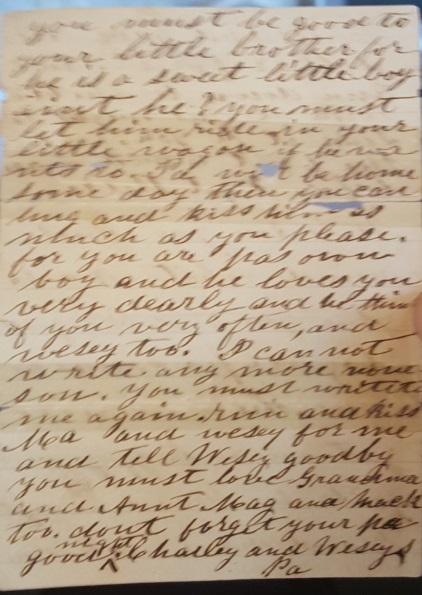 you must be good to
your little brother for
he is a sweet little boy
aint he? you must
let him ride in your
little wagon if he wa
nts to. Pa will be home
some day then you can
hug and kiss him as
much as you please.
for you are pas own
boy and he loves you
very dearly and he thinks
of you very often, and
wesey too. I can not
write any more now
son. you must write to
me again. run and kiss
Ma and wesey for me
and tell Wesey goodby
you must love Grandma
and Aunt Mag and Mack
too. dont forget your pa
good night Charley and Wesey
Pa